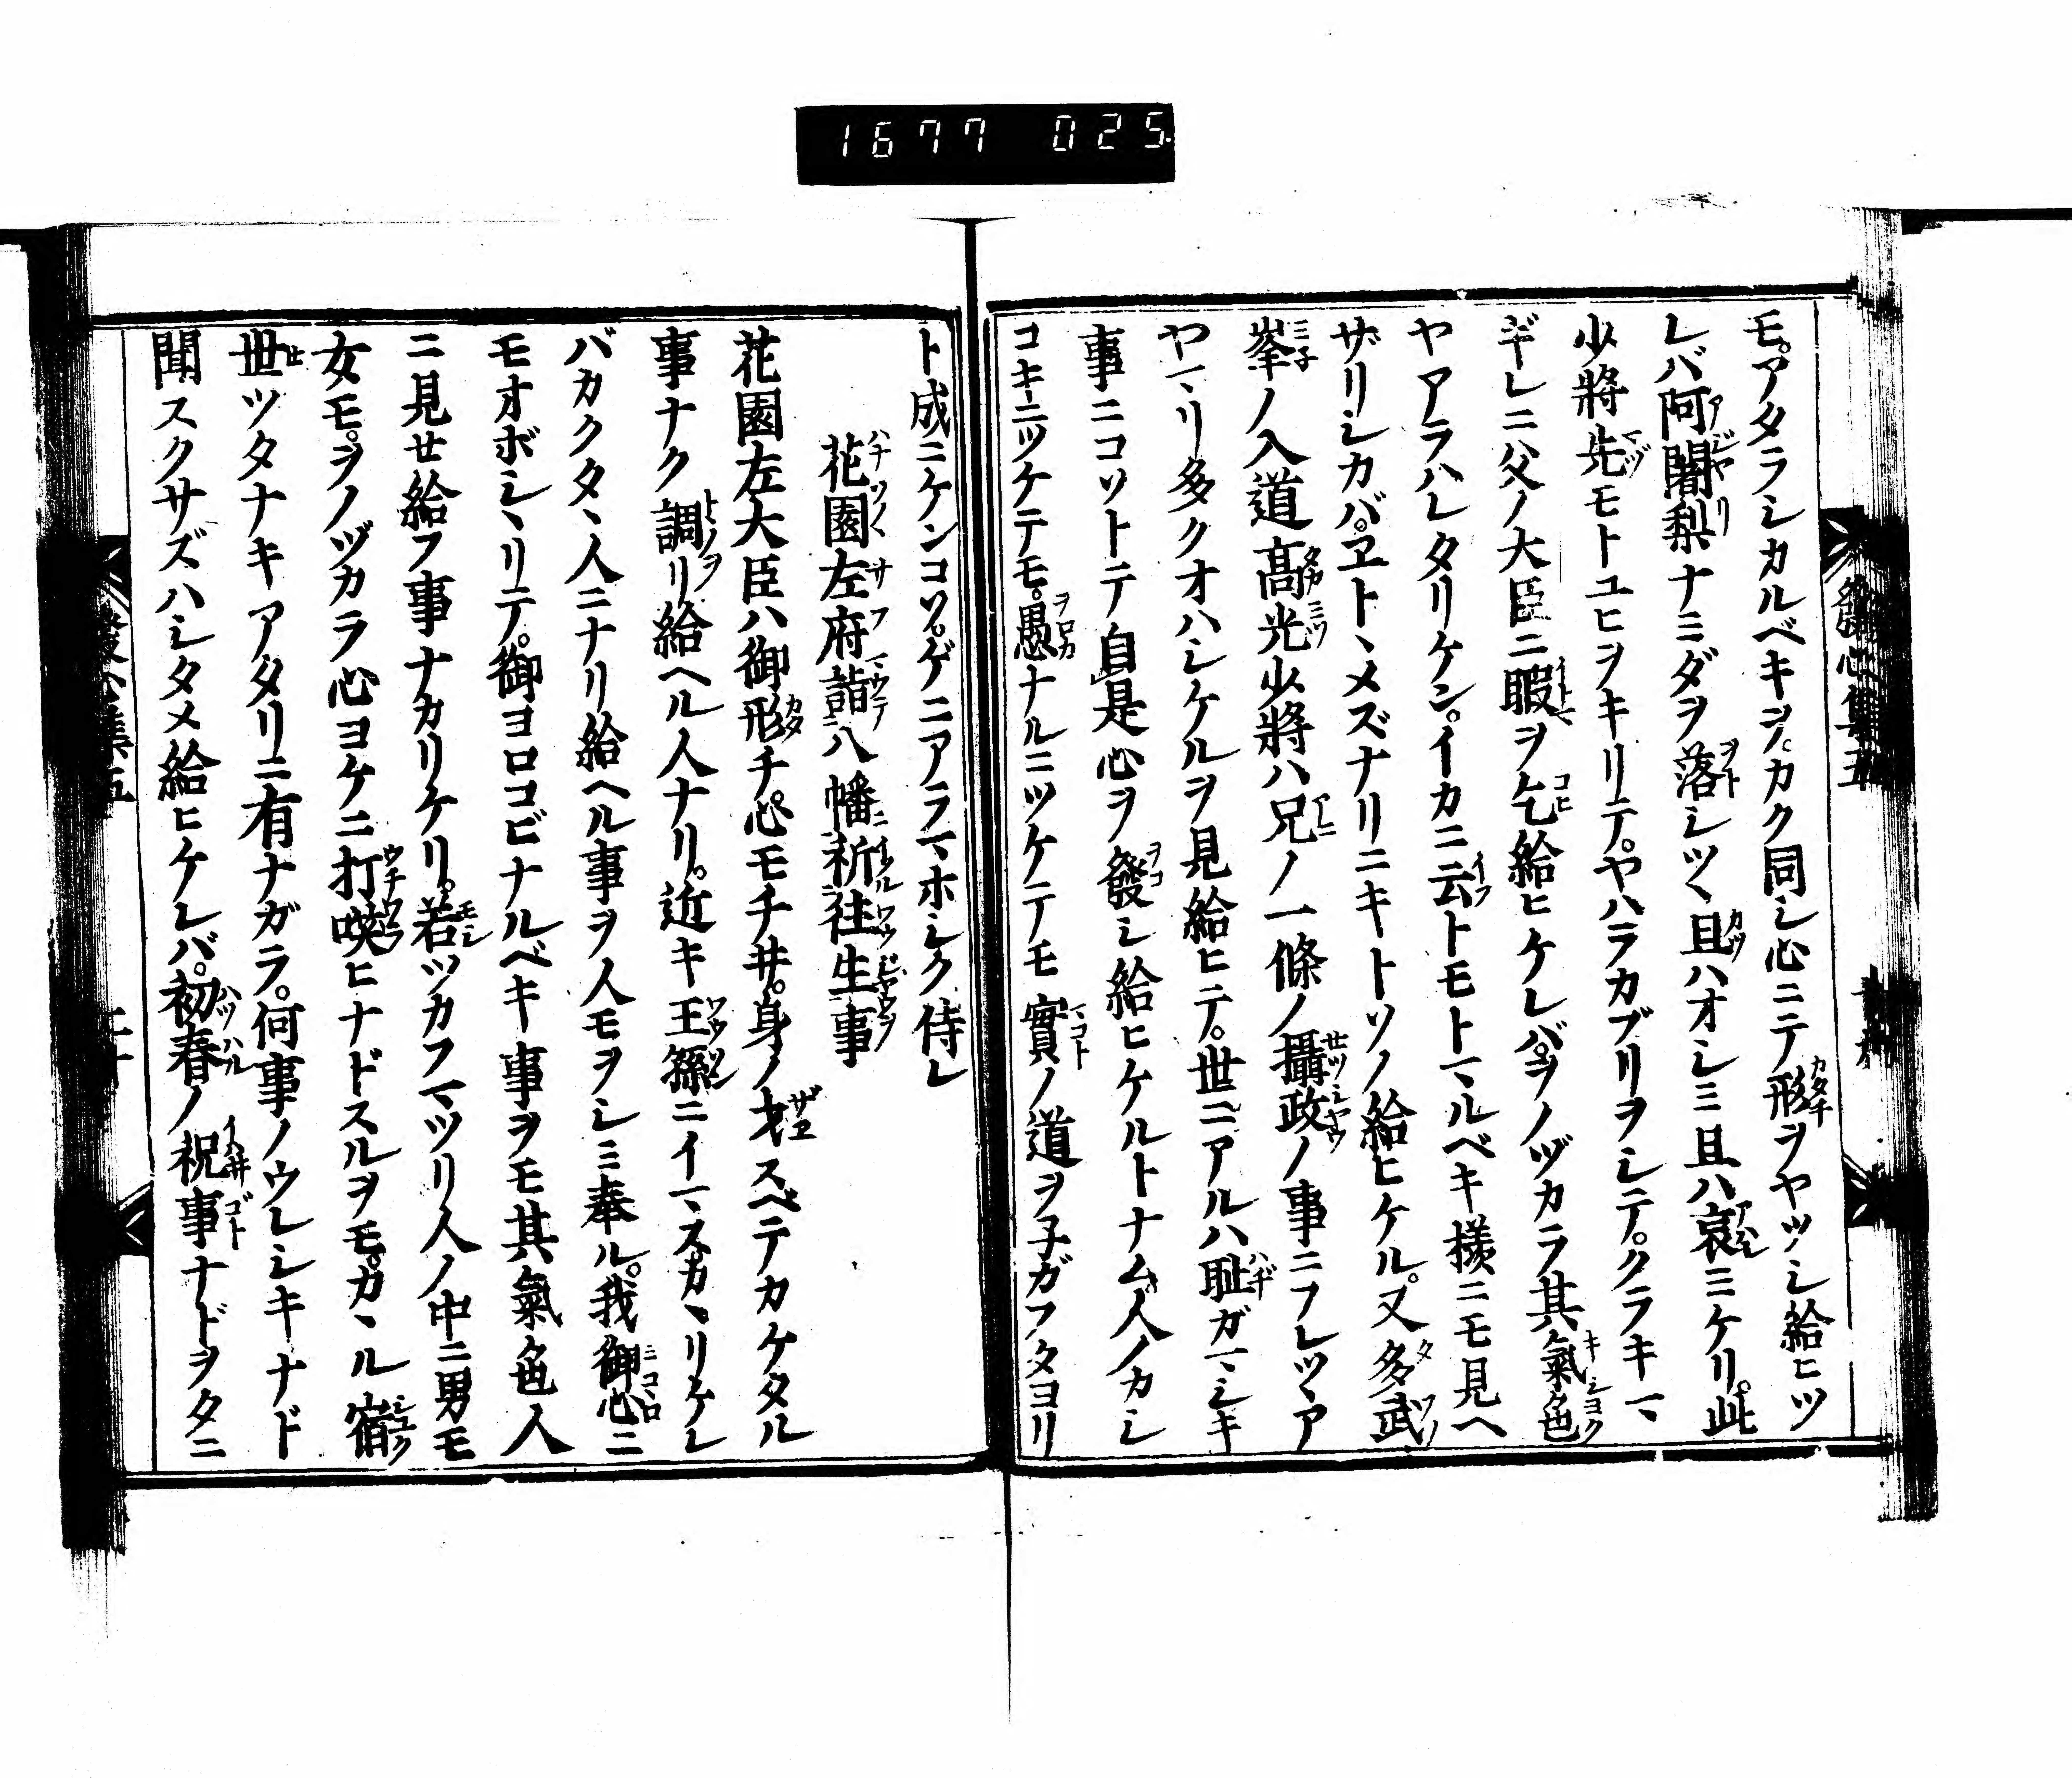 1677 025
發心集五
モ。アタラシカルベキヲ。カク同シ心ニテ形ヲヤツシ給ヒツ
レバ阿闍梨ナミダヲ落シツヽ且ハオシミ且ハ哀ミケリ。此
少將先モトユヒヲキリテ。ヤハラカブリヲシテ。クラキマヽ
ギレニ父ノ大臣ニ暇ヲ乞給ヒケレバ。ヲノヅカラ其氣色
ヤアラハレタリケン。イカニ云トモトマルベキ樣ニモ見ヘ
ザリシカバ。ヱトヽメズナリニキトソノ給ヒケル。又多武
峯ノ入道高光少將ハ兄ノ一條ノ攝政ノ事ニフレツヽア
ヤマリ多クオハシケルヲ見給ヒテ。世ニアルハ恥ガマシキ
事ニコソトテ自是心ヲ發シ給ヒケルトナム。人ノカシ
コキニツケテモ。愚ナルニツケテモ實ノ道ヲ子ガフタヨリ
ト成ニケンコソ。ゲニアラマホシク侍レ
花園左府詣八幡祈往生事
花園左大臣ハ御形チ。心モチ井。身ノ才スベテカケタル
事ナク調リ給ヘル人ナリ。近キ王孫ニイマスカヽリケレ
バカクタヽ人ニナリ給ヘル事ヲ人モヲシミ奉ル。我御心ニ
モオボシヽリテ。御ヨロコビナルベキ事ヲモ其氣色人
ニ見せ給フ事ナカリケリ。若ツカフマツリ人ノ中ニ男モ
女モ。ヲノヅカラ心ヨケニ打咲ヒナドスルヲモ。カヽル宿
世ツタナキアタリニ有ナガラ。何事ノウレシキナド
聞スクサズハシタメ給ヒケレバ。初春ノ祝事ナドヲタニ
發心集五